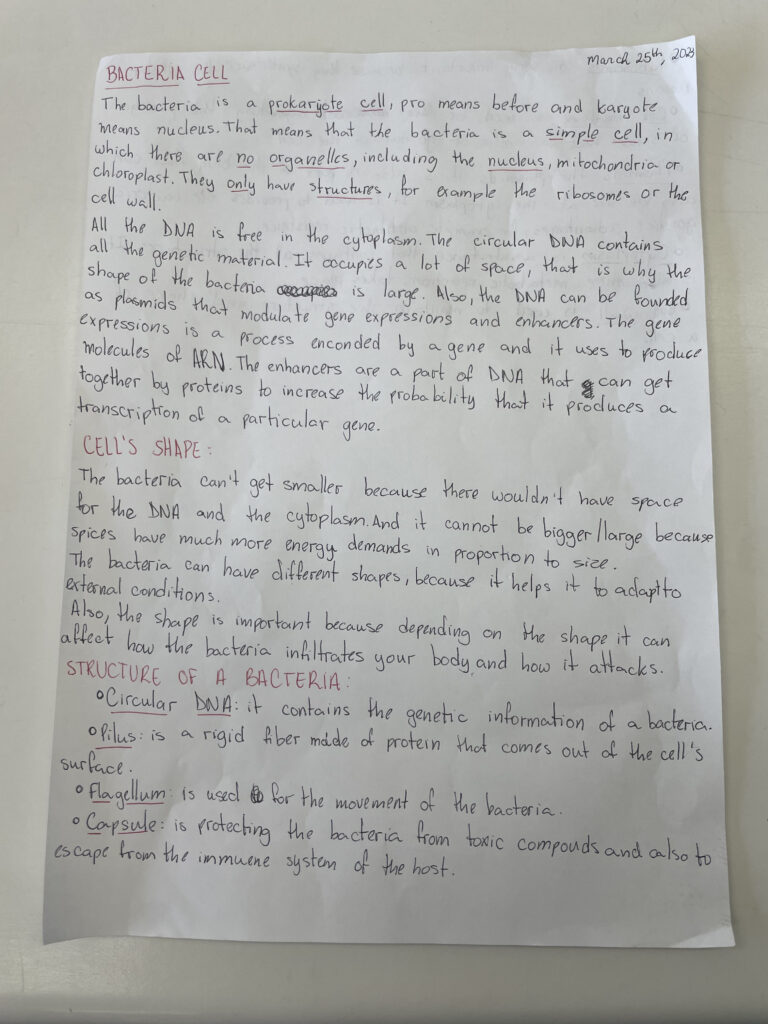 March 25th, 2023
BACTERIA CELL
The bacteria is a prokaryote cell, pro means before and karyote
means nucleus. That means that the bacteria is a simple cell, in
which there are no organelles, including the nucleus, mitochondria or
chloroplast. They only have structures, for example the ribosomes or the
cell wall.
All the DNA is free in the cytoplasm. The circular DNA contains
all the genetic material. It occupies a lot of space, that is why the
shape of the bacteria is large. Also, the DNA can be founded
as plasmids that modulate gene expressions and enhancers. The gene
expressions is a process enconded by a gene and it uses to produce
molecules of ARN. The enhancers are a part of DNA that can get
together by proteins to increase the probability that it produces a
transcription of a particular gene.
CELL'S SHAPE:
The bacteria can't get smaller because there wouldn't have space
for the DNA and the cytoplasm. And it cannot be bigger/large because
spices have much more energy demands in proportion to size.
The bacteria can have different shapes, because it helps it to adapt to
external conditions.
Also, the shape is important because depending on the shape it can
affect how the bacteria infiltrates your body, and how it attacks.
STRUCTURE OF A BACTERIA:
° Circular DNA: it contains the genetic information of a bacteria.
° Pilus: is a rigid fiber made of protein that comes out of the cell's
surface.
° Flagellum: is used for the movement of the bacteria.
° Capsule: is protecting the bacteria from toxic compouds and also to
escape from the immuene system of the host.